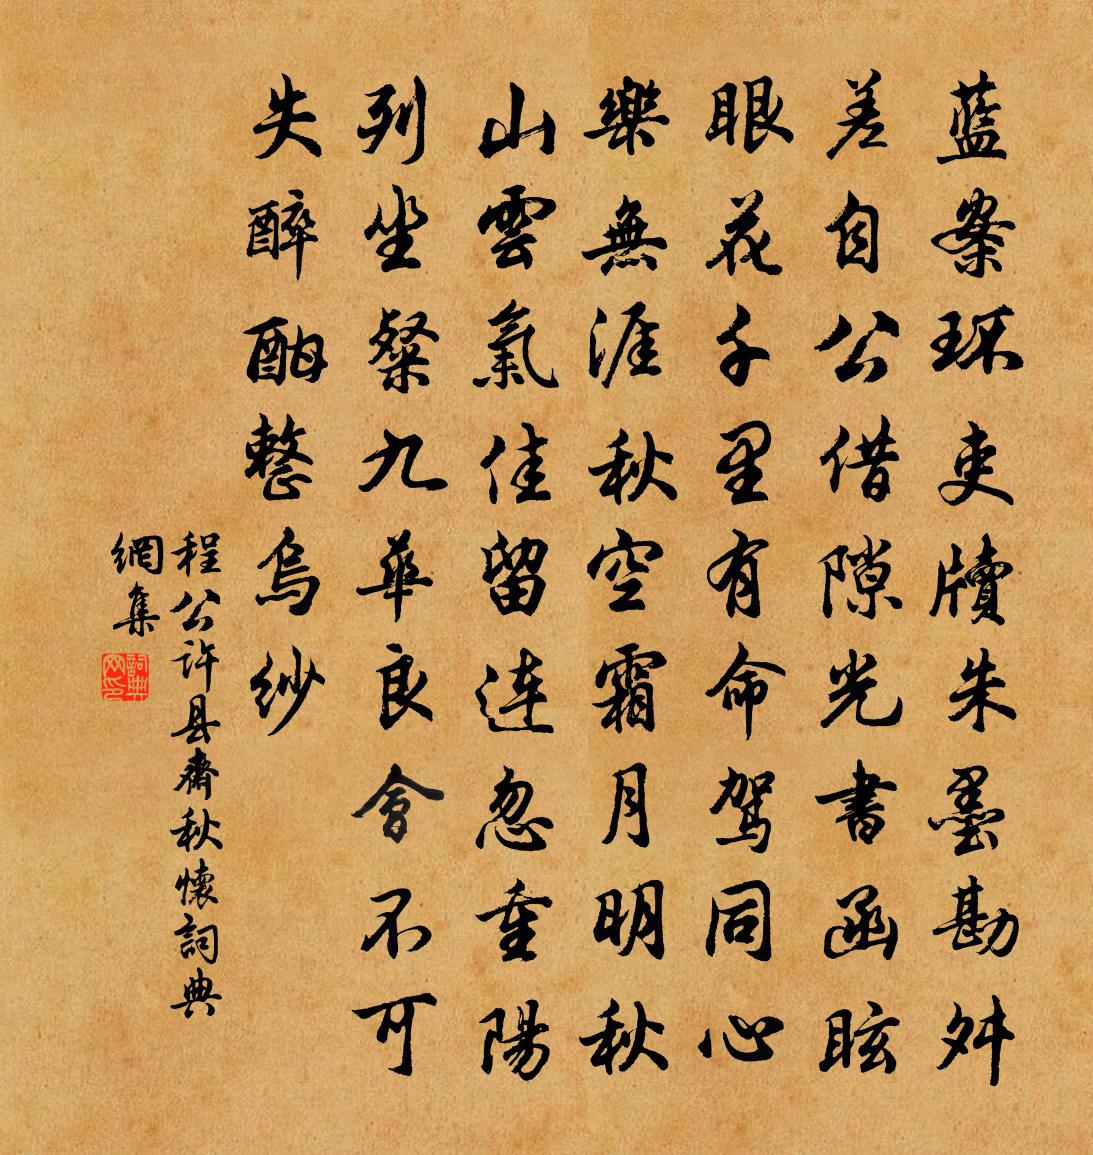 藍案环吏牘朱墨勘舛
差自公借隙光書函眩
眼花千里有命駕同心
樂無涯秋空霜月明秋
山雲氣佳留連忽重陽
列坐粲九華良會不可
失醉酣整烏紗
程公許县齋秋懷詞典
網集
詞典
网印